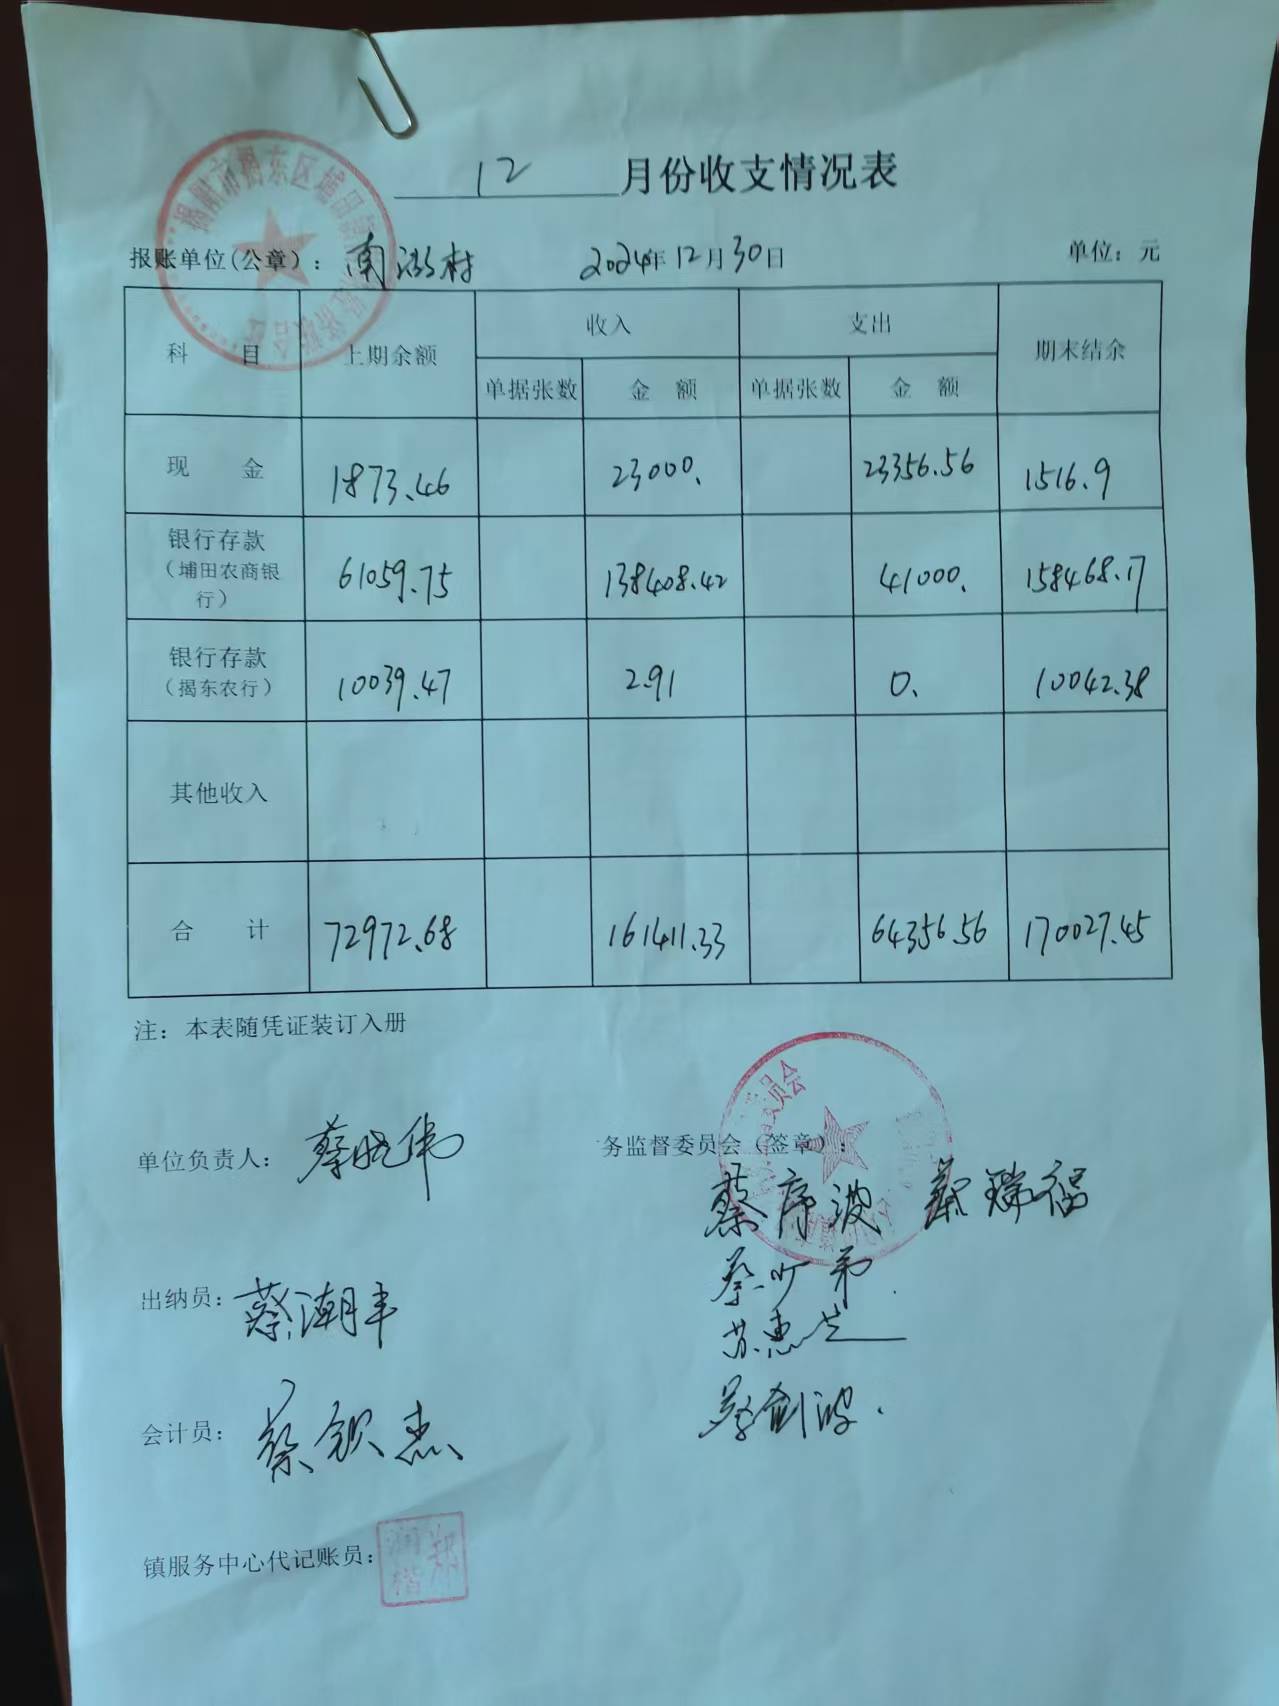 12 月份收支情况表
报账单位(公章): 南 村 2024年12月30日 单位: 元
科 目 上期余额 收入 支出 期末结余
单据张数 金 额 单据张数 金 额
现 金 1873.46 23000. 23356.56 1516.9
银行存款(埔田农商银行) 61059.75 138408.42 41000. 158468.17
银行存款(揭东农行) 10039.47 2.91 0. 10042.38
其他收入
合 计 72972.68 161411.33 64356.56 170027.45
注: 本表随凭证装订入册
单位负责人: 蔡晓伟 务监督委员会(签章):
蔡序波 蔡瑞福
蔡少弟
苏惠芝
出纳员: 蔡潮丰
蔡剑波.
会计员: 蔡钦杰
镇服务中心代记账员: 郑润楷